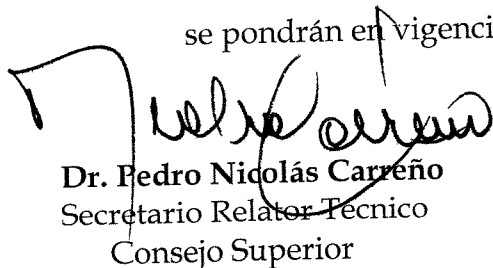 se pondrán en vigenci
Dr. Pedro Nicolás Carreño
Secretario Relator Técnico
Consejo Superior